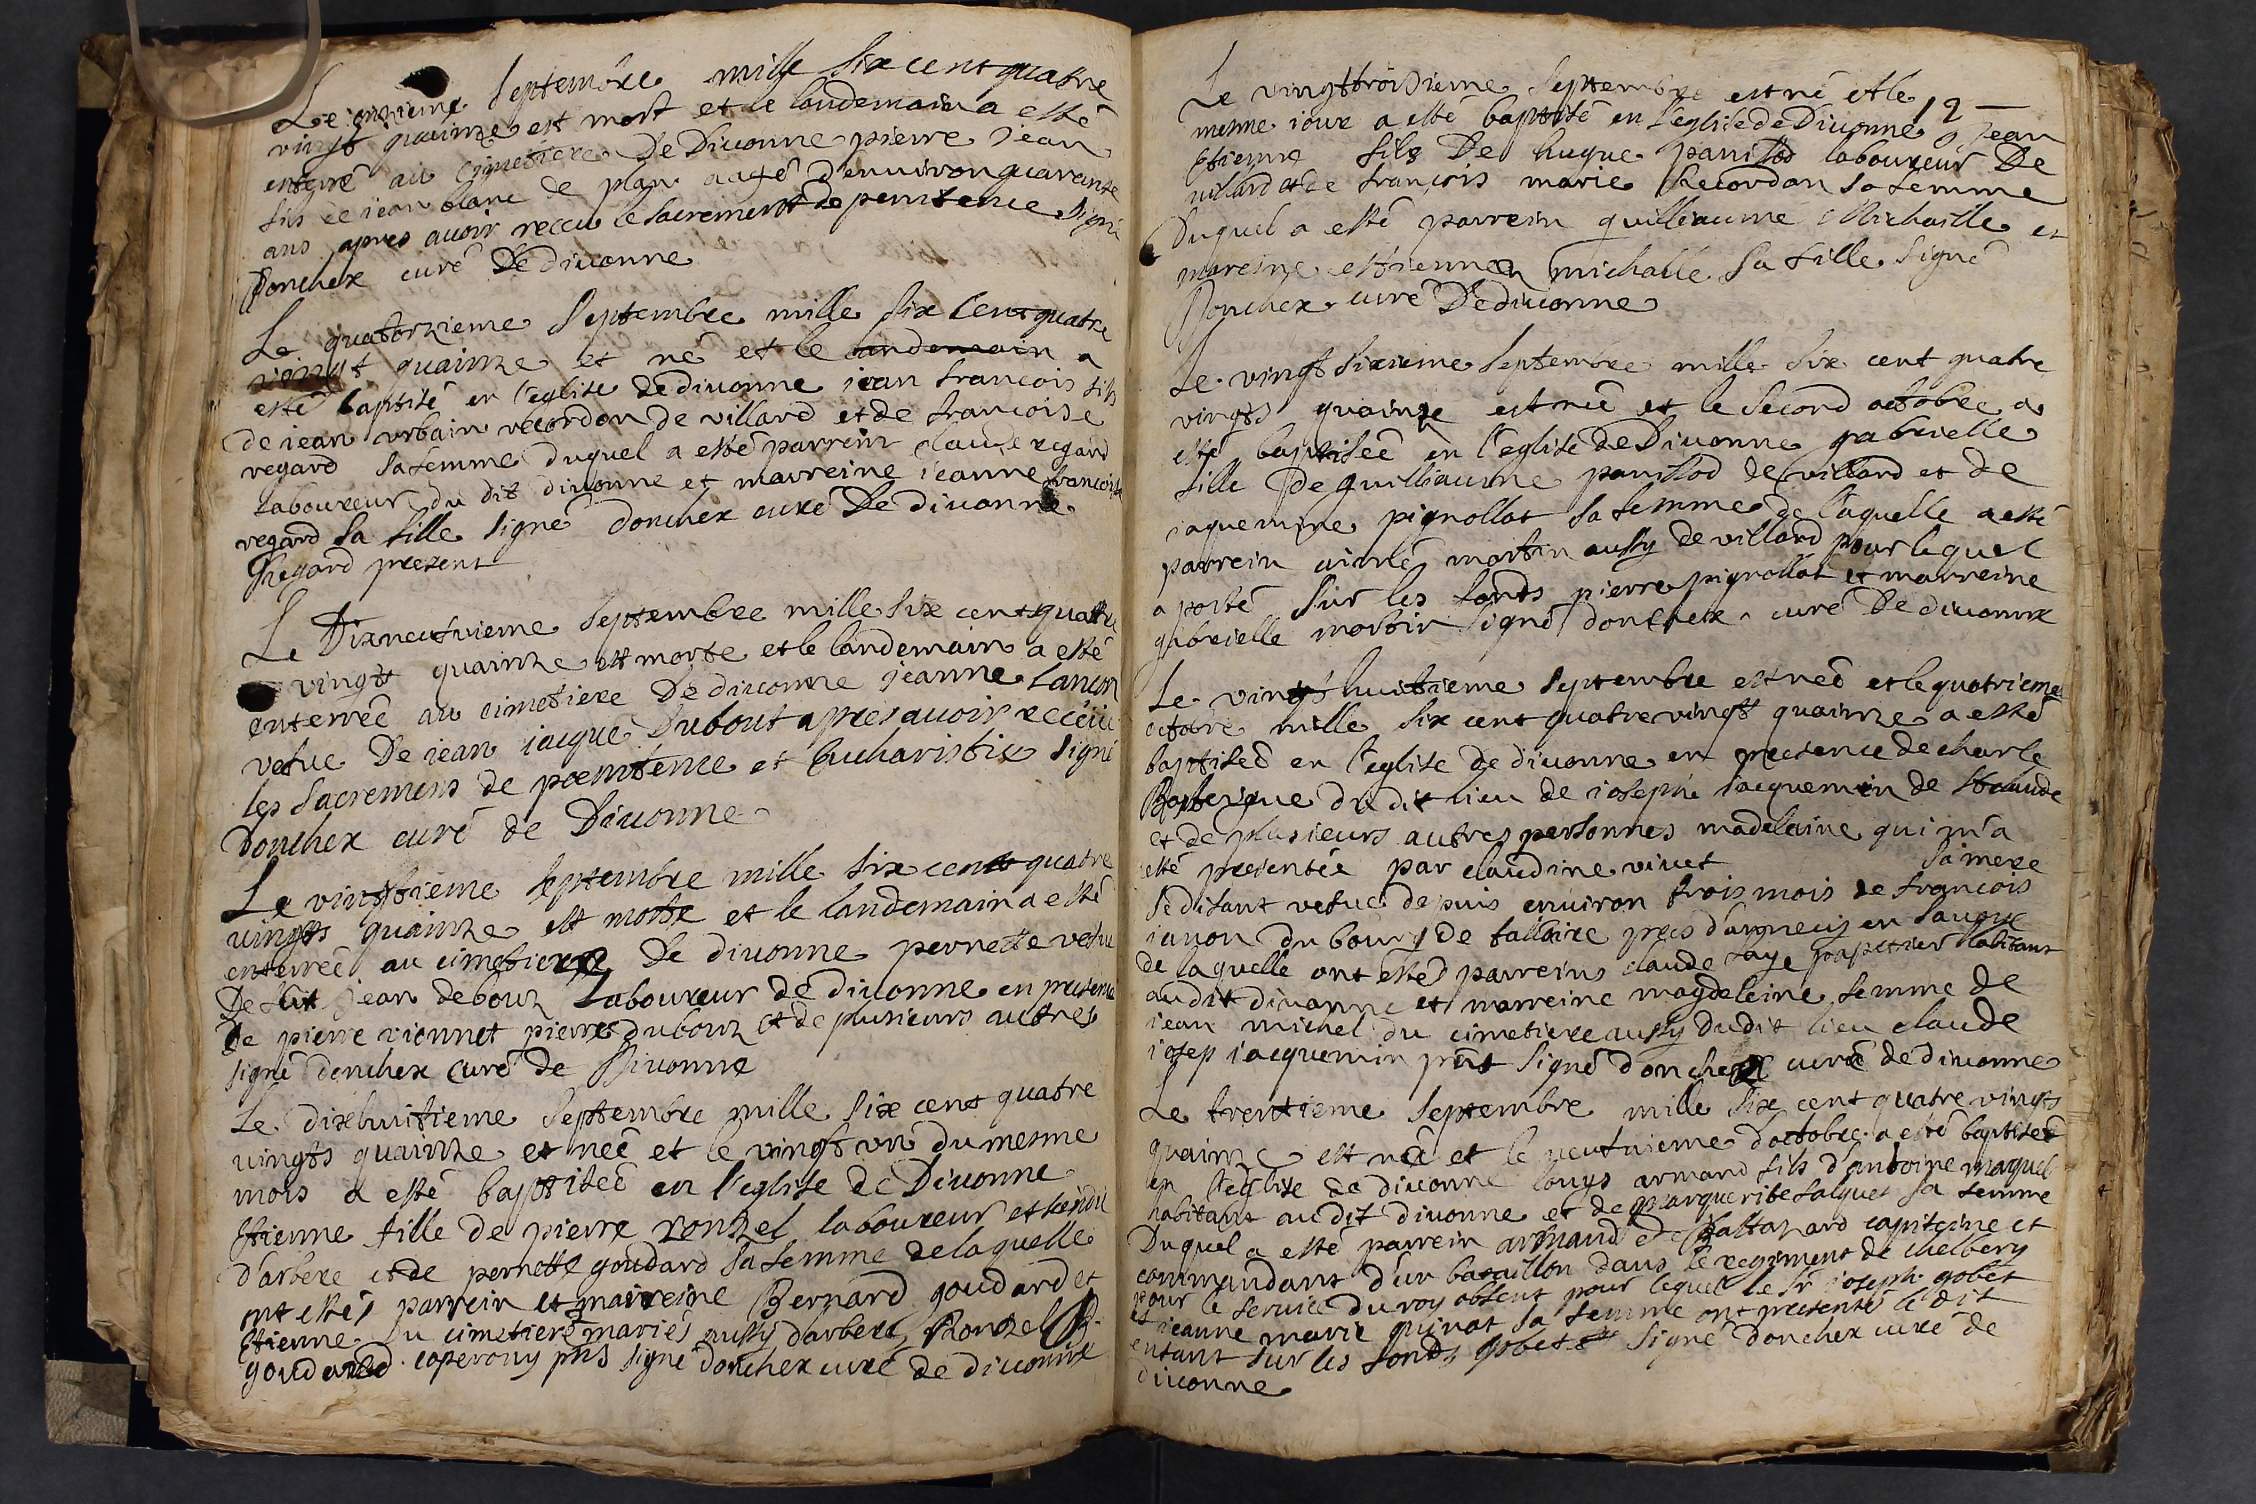 Le onzieme Septembre mille six cent quatre
vingt quainze est mort et le landemain a esté
enterré au cimetiere De Divonne pierre Jean
fils de iean blanc de plan aagé d'environ quarante
ans apres avoir receu le sacrement de penitence signé
Donchex curé De divonne
Le quatorzieme Septembre mille six Cent quatre
vingt quainze et né et le landemain a
esté baptisé en l'eglise de divonne iean francois fils
de iean urbain recordon de villard et de francoise
regard sa femme duquel a esté parrein claude regard
Laboureur du dit divonne et marreine ieanne francoise
regard sa fille signé donchex curé De divonne
Cregard present
Le Dixneufvieme Septembre mille six cent quatre
vingt quainze est morte et le landemain a esté
enterreé au cimetiere De divonne jeanne Lancon
vefve De iean iacque Dubout apres avoir receue
les sacremens de poenitence et Eucharistie signé
Donchex curé de Divonne
Le vingttieme septembre mille six cent quatre
vingts quainze est morte et le landemain a esté
enterreé au cimetiere De divonne pernette vefve
De fut jean debouz Laboureur de divonne en presence
De pierre vionnet pierre dubouz et de plusieurs autres
signé donchex Curé de Divonne
Le dixhuitieme Septembre mille six cent quatre
vingts quainze et née et le vingt un du mesme
mois a esté baptiseé en l'eglise de Divonne
Etienne fille de pierre ronzel laboureur et
d'arbere et de pernette goudard sa femme de laquelle
ont estés parrein et marreine Bernard goudard et
Etienne du cimetiere mariés aussy d'arbere, Ronzel B.
goudard. caperony pns signé donchex curé de divonne
Le vingttroisieme Septembre est né et le 12
mesme iour a esté baptisé en l'eglise de Divonne Jean
Etienne fils De hugue panissod laboureur De
villard et de françois marie Recordon sa femme
Duquel a esté parrein guilleaume Michaille et
mareine estienne michaille sa fille signé
Donchex curé De divonne
Le vingt sixieme Septembre mille six cent quatre
vingts quainze est née et le second octobre a
esté baptiseé en l'eglise de Divonne gabrielle
fille De guilliaume panissod de villard et de
iaquemine pignollat sa femme de laquelle a esté
parrein aimé martin aussy de villard pour lequel
a porté sur les fonds pierre pignollat et marreine
gabrielle martin signé donchex curé De divonne
Le vingt huitieme Septembre est neé et le quatrieme
octobre mille six cent quatre vingt quainze a esté
baptiseé en l'eglise de divonne en presence de charle
du dit lieu de ioseph iacquemin de
et de plusieurs autres personnes madelaine qui m'a
esté presentée par claudine vivet sa mere
se disant vefve depuis environ trois mois de francois
iavon du bourg de talloire pres d'annecy en savoye
de laquelle ont esté parreins claude saye papetier habitant
audit divonne et marreine magdeleine femme de
iean michel du cimetiere aussy dudit lieu claude
iosep iacquemin pnt signé donchex curé de divonne
Le trentieme Septembre mille six cent quatre vingts
quainze est né et le neufvieme d'octobre a esté baptiseé
en l'eglise de divonne louys armand fils d'antoine maquel
habitant audit divonne et de marguerite salquet sa femme
Duquel a esté parrein armand de Baltazard capiteine et
commandant d'un bataillon dans le regiment de chelbery
pour le service du roy absent pour lequel le Sr ioseph gobet
et ieanne marie quinat sa femme ont presenté le dit
enfant sur les fonds gobet signé donchex curé de
divonne